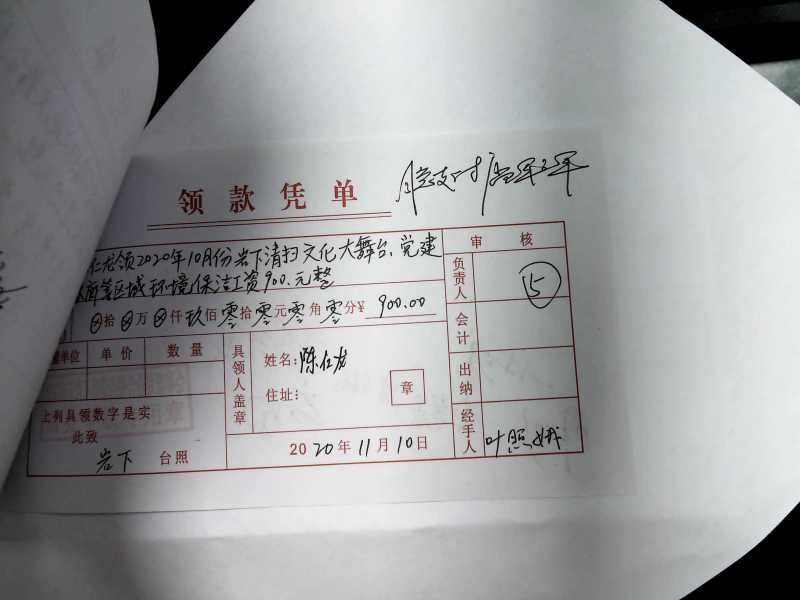 领款凭单
仁龙领2020年10月份岩下清扫文化大舞台、党建
区域环境保洁工资900.元整
⊗拾⊗万⊗仟玖佰零拾零元零角零分¥ 900.00
审核
负责人
15
会计
出纳
经手人
叶照娥
单位 单价 数量
具领人盖章
姓名:陈仁龙
住址:
章
上列具领数字是实
此致
岩下 台照
2020年11月10日